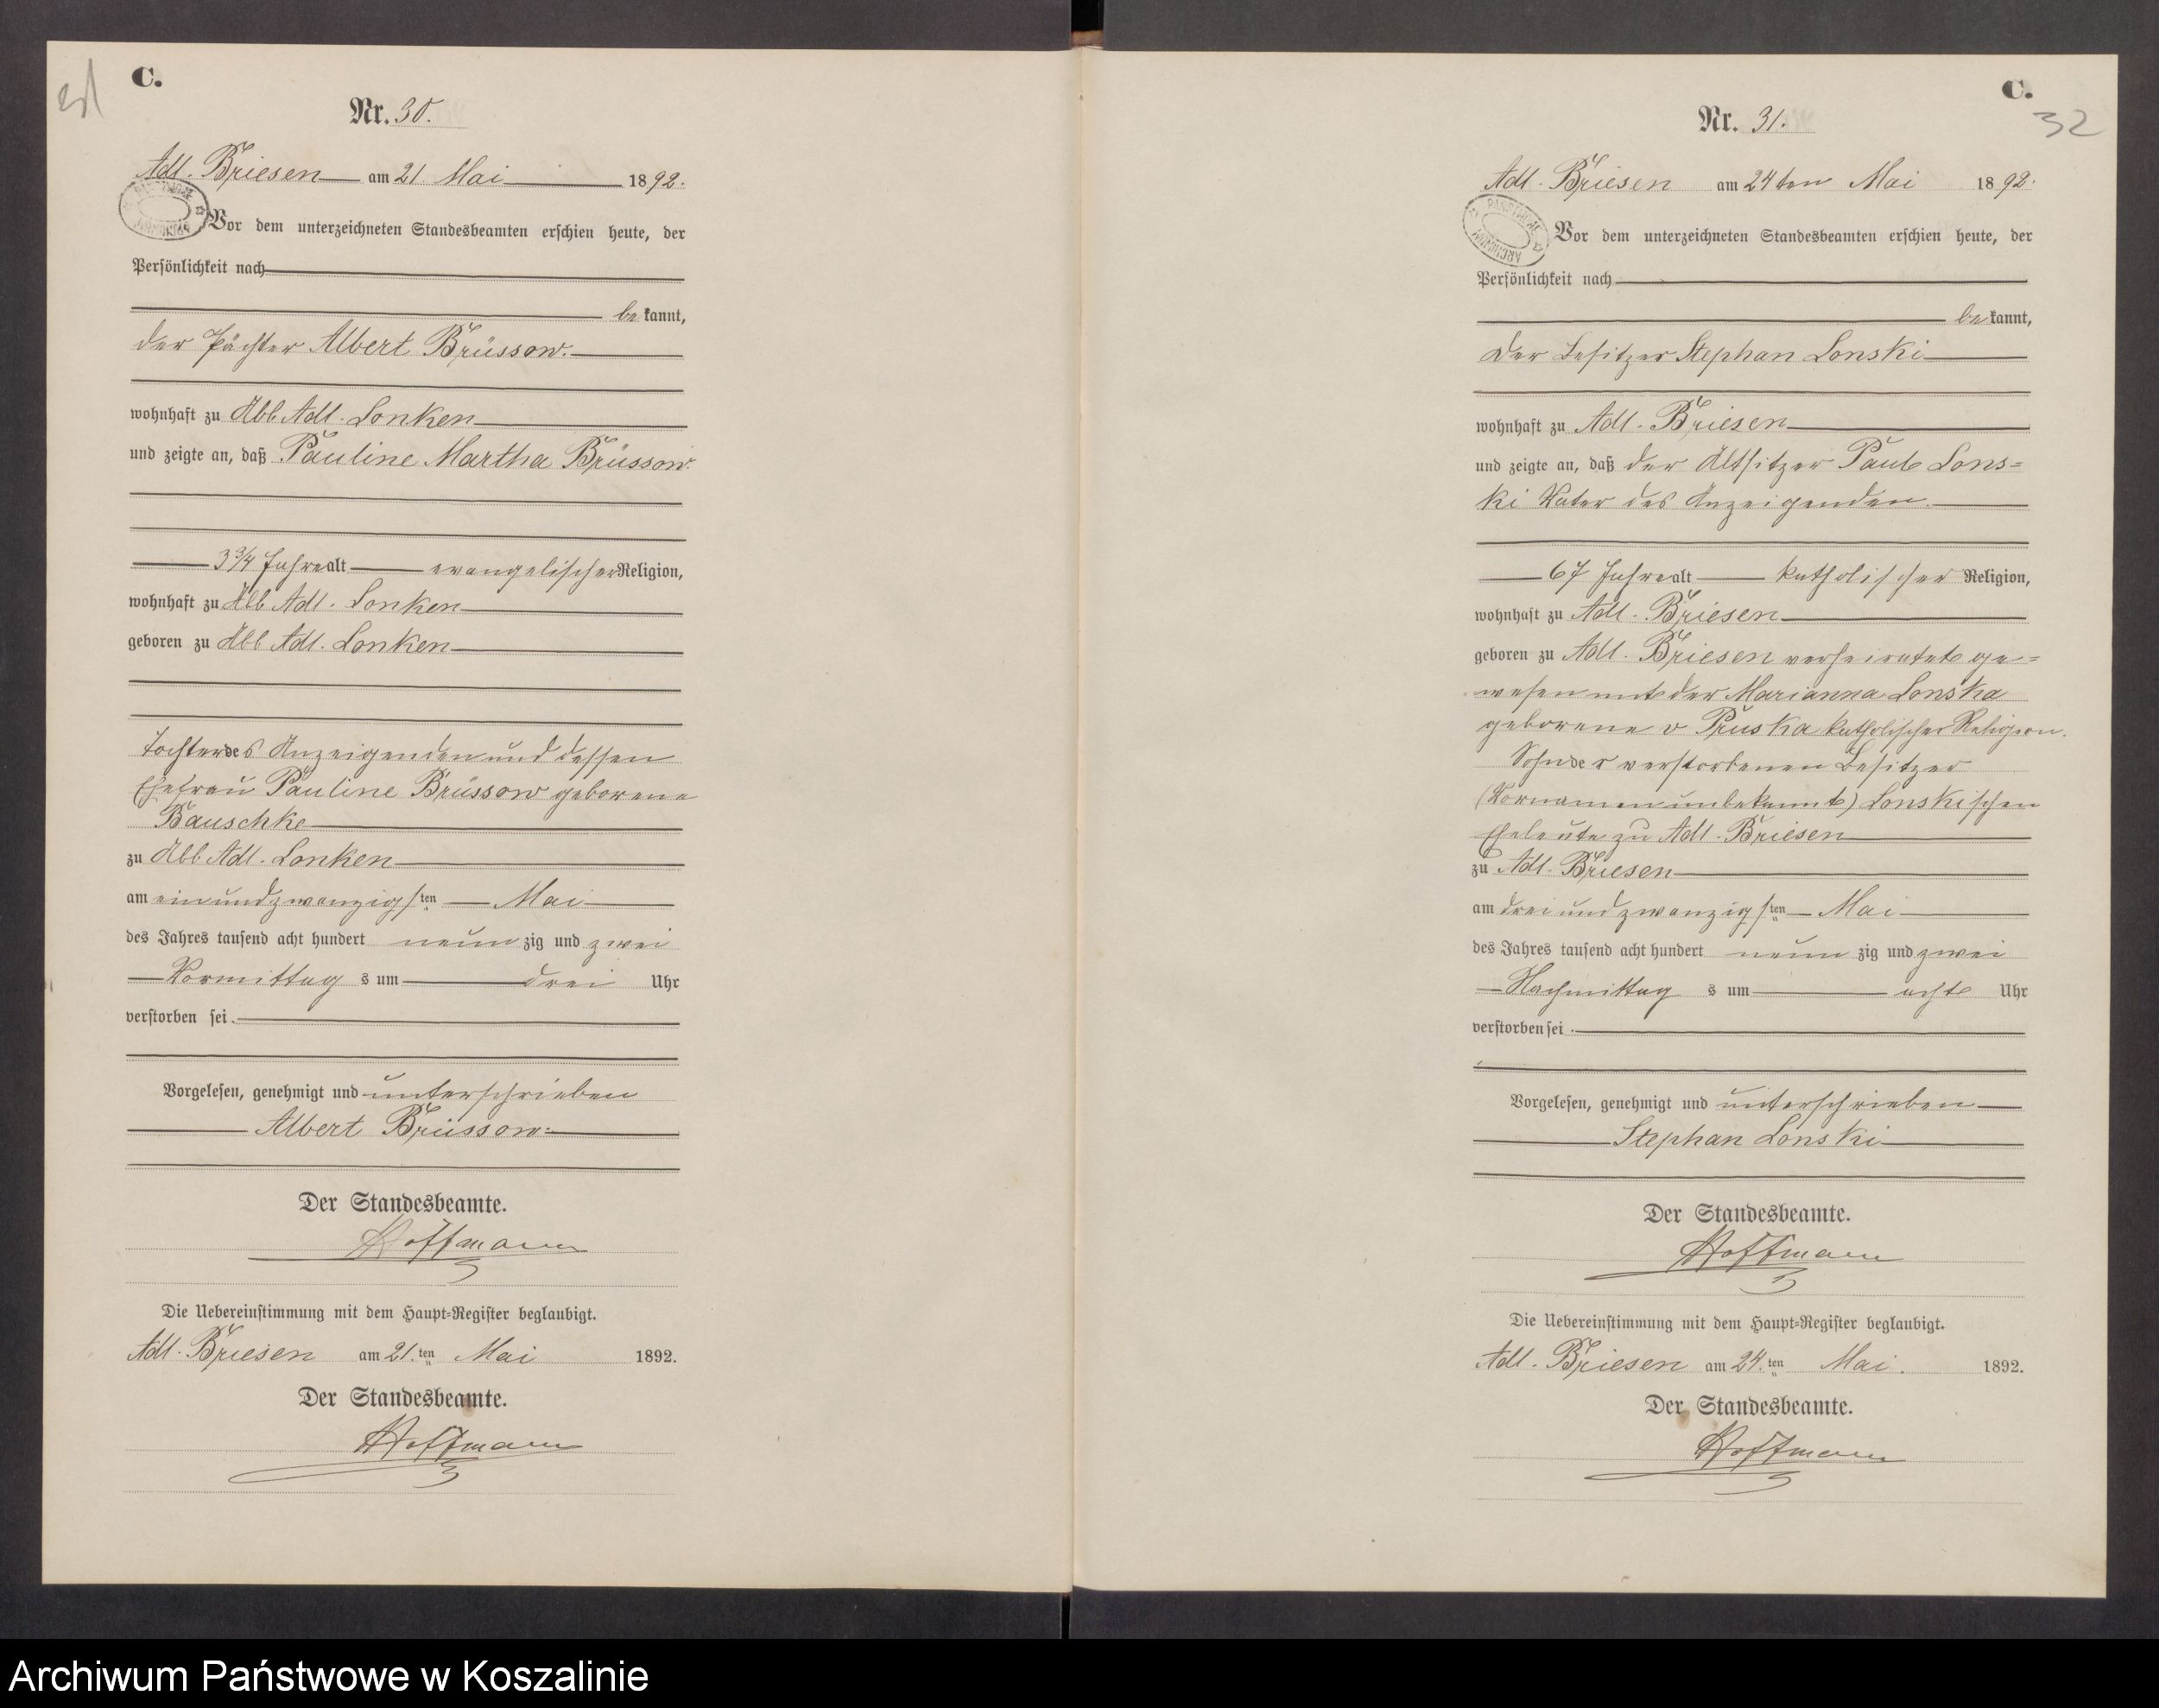 C.
Nr. 30.
Adl. Briesen am 21. Mai 1892.
Vor dem unterzeichneten Standesbeamten erschien heute, der
Persönlichkeit nach
bekannt,
der Pächter Albert Brüssow.
wohnhaft zu Abb Adl. Lonken
und zeigte an, daß Pauline Martha Brüssow.
3 3/4 Jahre alt evangelischer Religion,
wohnhaft zu Abb Adl. Lonken
geboren zu Abb Adl. Lonken
Tochter des Anzeigenden und dessen
Ehefrau Pauline Brüssow geborene
Bauschke
zu Abb Adl. Lonken
am einundzwanzigsten Mai
des Jahres tausend acht hundert neunzig und zwei
Vormittags um drei Uhr
verstorben sei.
Vorgelesen, genehmigt und unterschrieben
Albert Brüssow.
Der Standesbeamte.
Hoffmann
Die Uebereinstimmung mit dem Haupt-Register beglaubigt.
Adl. Briesen am 21.ten Mai 1892.
Der Standesbeamte.
Hoffmann
C.
32
Nr. 31.
Adl. Briesen am 24ten Mai 1892.
PAŃSTWOWE ARCHIWUM
Vor dem unterzeichneten Standesbeamten erschien heute, der
Persönlichkeit nach
bekannt,
der Besitzer Stephan Lonski
wohnhaft zu Adl. Briesen
und zeigte an, daß der Altsitzer Paul Lons=
ki Vater des Anzeigenden.
67 Jahre alt katholischer Religion,
wohnhaft zu Adl. Briesen
geboren zu Adl. Briesen verheiratet ge=
wesen mit der Marianna Lonska
geborene v Pruska katholischer Religion.
Sohn der verstorbenen Besitzer
(Vornamen unbekannt) Lonskischen
Eheleute zu Adl. Briesen
zu Adl. Briesen
am dreiundzwanzigsten Mai
des Jahres tausend acht hundert neunzig und zwei
Nachmittags um acht Uhr
verstorben sei.
Vorgelesen, genehmigt und unterschrieben
Stephan Lonski
Der Standesbeamte.
Hoffmann
Die Uebereinstimmung mit dem Haupt-Register beglaubigt.
Adl. Briesen am 24.ten Mai. 1892.
Der Standesbeamte.
Hoffmann
Archiwum Państwowe w Koszalinie